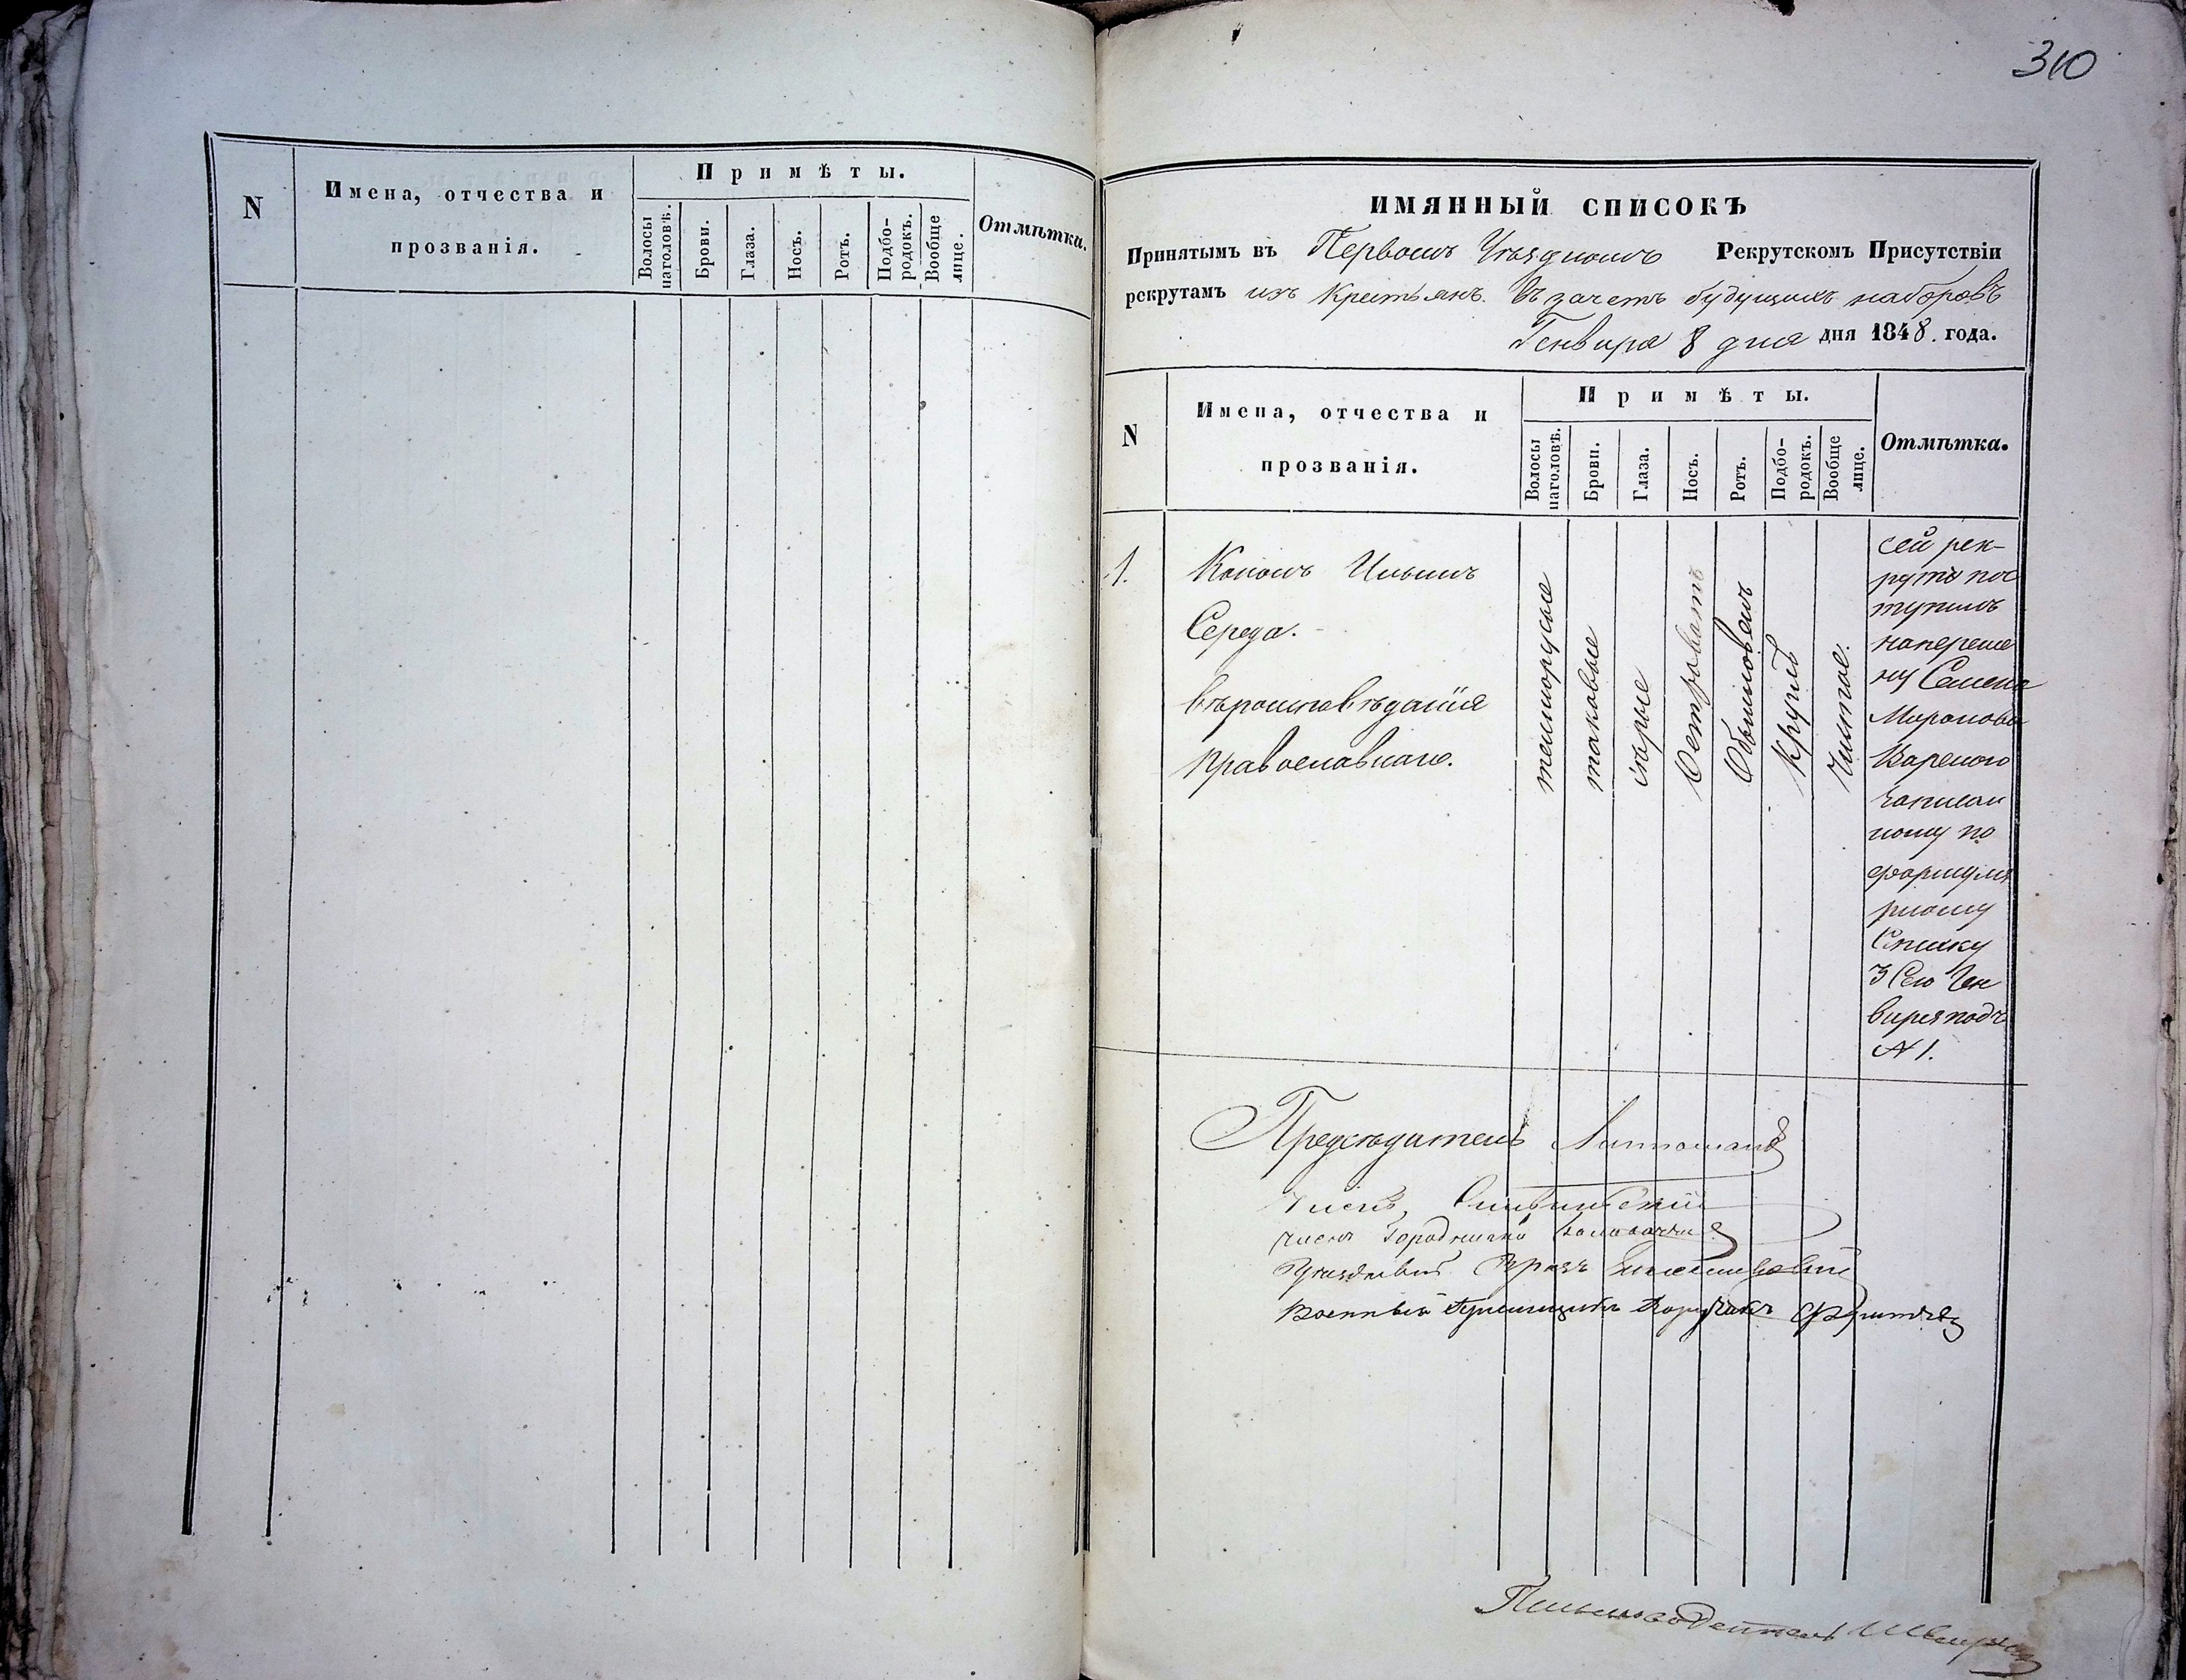 310
N
Имена, отчества и
прозванія.
Примѣты.
Волосы
наголовѣ.
Брови.
Глаза.
Носъ.
Ротъ.
Подбо-
родокъ.
Вообще
лице.
Отмѣтка.
ИМЯННЫЙ СПИСОКЪ
Принятымъ въ Первомъ Уѣздномъ Рекрутскомъ Присутствіи
рекрутамъ изъ Крестьянъ. въ зачетъ будущихъ наборовъ
Генваря 8 дня дня 1848. года.
N
Имена, отчества и
прозванія.
Примѣты.
Волосы
наголовѣ.
Брови.
Глаза.
Носъ.
Ротъ.
Подбо-
родокъ.
Вообще
лице.
Отмѣтка.
1.
Кононъ Ильинъ
Середа.
вѣроисповѣданія
православнаго.
темнорусые
таковые
сѣрые
Островатъ
Обыкновенъ
Круглъ
Чистое.
сей рек-
рутъ пос
тупилъ
наперемѣ
ну Семена
Миронова
Кореного
записан
ному по
формуля
рному
Списку
3 Сего Ген
варя подъ
N 1.
Предсѣдатель
Членъ,
Членъ Городничій
Уѣздный Врачъ
Военный Пріемщикъ Поручикъ
Письмоводитель